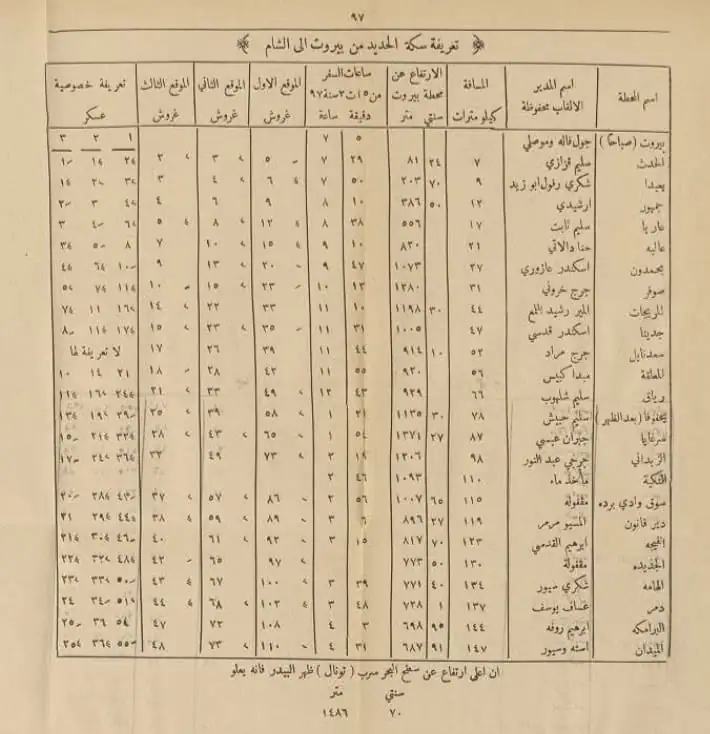 ٩٧
﴿ تعريفة سكة الحديد من بيروت الى الشام ﴾
اسم المحطة اسم المدير الالقاب محفوظة المسافة كيلو مترات الارتفاع عن محطة بيروت متر سنتي ساعات السفر من ١٥ ت ٢ سنة ٩٧ ساعة دقيقة الموقع الاول غروش الموقع الثاني غروش الموقع الثالث غروش تعريفة خصوصية عسكر
بيروت (صباحاً) جول فاله وموصلي ٧ ٥ ١ ٢ ٣
الحدث سليم قزازي ٧ ٨١ ٢٤ ٧ ٢٩ ٥ ٣ ٢
بعبدا شكري رفول ابو زيد ٩ ٢٠٣ ٧٠ ٧ ٥٠ ٦ ٤ ٣
جمهور ارشيدي ١٢ ٣٨٦ ٥٠ ٨ ١٠ ٩ ٦ ٤
عاريا سليم ثابت ١٧ ٥٥٦ ٨ ٣٨ ١٢ ٨ ٥
عاليه حنا دالاتي ٢١ ٨٢٠ ٩ ١٠ ١٥ ١٠ ٧
بحمدون اسكندر عازوري ٢٧ ١٠٧٣ ٩ ٤٧ ٢٠ ١٣ ٩
صوفر جرج خروني ٣١ ١٢٨٠ ١٠ ١٢ ٢٣ ١٥ ١٠
المريجات المير رشيد اللمع ٤٤ ١١٩٨ ٣٠ ١١ ١٠ ٣٣ ٢٢ ١٤
جديتا اسكندر قدسي ٤٧ ١٠٠٥ ١١ ٣١ ٣٥ ٢٣ ١٥
سعدنايل جرج مراد ٥٢ ٩١٤ ١٠ ١١ ٤٤ ٣٩ ٢٦ ١٧ لا تعريفة لها
المعلقة ميدا كبس ٥٦ ٩٢٠ ١١ ٥٥ ٤٢ ٢٨ ١٨
رياق سليم شلهوب ٦٦ ٩٢٩ ١٢ ٤٣ ٤٩ ٣٣ ٢١
يحفوفا (بعد الظهر) سليم حبيش ٧٨ ١١٣٥ ٣٠ ١ ٢١ ٥٨ ٣٩ ٢٥
سرغايا جبران عبسي ٨٧ ١٣٧١ ٢٧ ١ ٥٤ ٦٥ ٤٣ ٢٨
الزبداني جرجي عبد النور ٩٨ ١٢٠٦ ٢ ١٩ ٧٣ ٤٩ ٣٢
التكية مأخذ ماء ١١٠ ١٠٩٣ ٢ ٤٦
سوق وادي برده مقفولة ١١٥ ١٠٠٧ ٦٥ ٢ ٥٦ ٨٦ ٥٧ ٣٧
دير قانون المسيو مرمر ١١٩ ٨٩٦ ٢٧ ٣ ٦ ٨٩ ٥٩ ٣٨
الفيجه ابرهيم القدسي ١٢٣ ٨١٧ ٧٠ ٣ ١٥ ٩٢ ٦١ ٤٠
الجديده مقفولة ١٣٠ ٧٧٣ ٥٠ ٩٧ ٦٥ ٤٢
الهامه شكري سيور ١٣٤ ٧٧١ ٤٠ ٣ ٣٩ ١٠٠ ٦٧ ٤٣
دمر عساف يوسف ١٣٧ ٧٢٨ ١ ٣ ٤٨ ١٠٢ ٦٨ ٤٤
البرامكه ابرهيم روفه ١٤٤ ٦٩٨ ٩٥ ٤ ٣ ١٠٨ ٧٢ ٤٧
الميدان اسله وسيور ١٤٧ ٦٨٧ ٩١ ٤ ٣١ ١١٠ ٧٣ ٤٨
ان اعلى ارتفاع عن سطح البحر سرب (تونال) ظهر البيدر فانه يعلو
سنتي متر
٧٠ ١٤٨٦